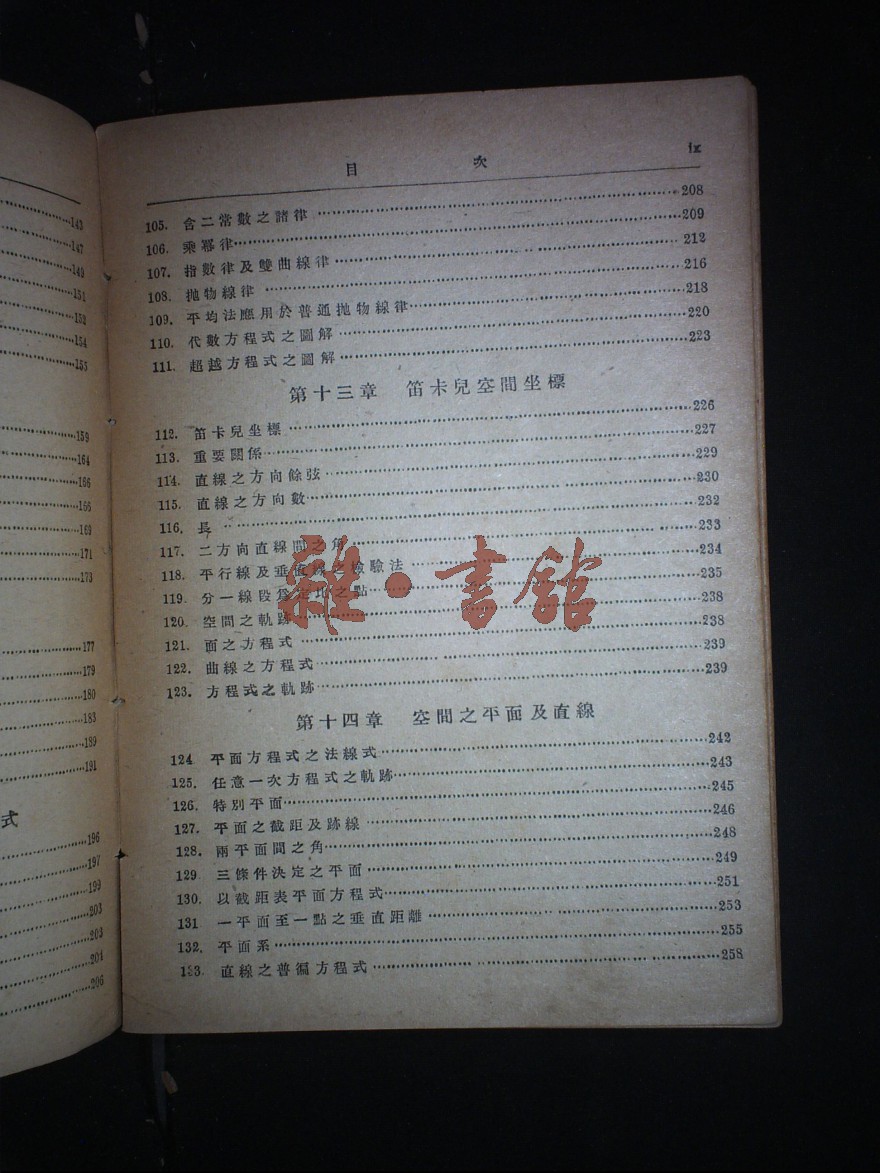 143
147
149
151
152
154
155
159
164
166
166
169
171
173
177
179
180
183
189
191
式
196
197
199
203
203
204
206
目 次 ix
105. 含二常數之諸律 208
106. 乘冪律 209
107. 指數律及雙曲線律 212
108. 拋物線律 216
109. 平均法應用於普通拋物線律 218
110. 代數方程式之圖解 220
111. 超越方程式之圖解 223
第十三章 笛卡兒空間坐標
112. 笛卡兒坐標 226
113. 重要關係 227
114. 直線之方向餘弦 229
115. 直線之方向數 230
116. 長 232
117. 二方向直線間之角 233
118. 平行線及垂直線之檢驗法 234
119. 分一線段爲定比之點 235
120. 空間之軌跡 238
121. 面之方程式 238
122. 曲線之方程式 239
123. 方程式之軌跡 239
第十四章 空間之平面及直線
124 平面方程式之法線式 242
125. 任意一次方程式之軌跡 243
126. 特別平面 245
127. 平面之截距及跡線 246
128. 兩平面間之角 248
129 三條件決定之平面 249
130. 以截距表平面方程式 251
131 一平面至一點之垂直距離 253
132. 平面系 255
133. 直線之普遍方程式 258
雜·書館